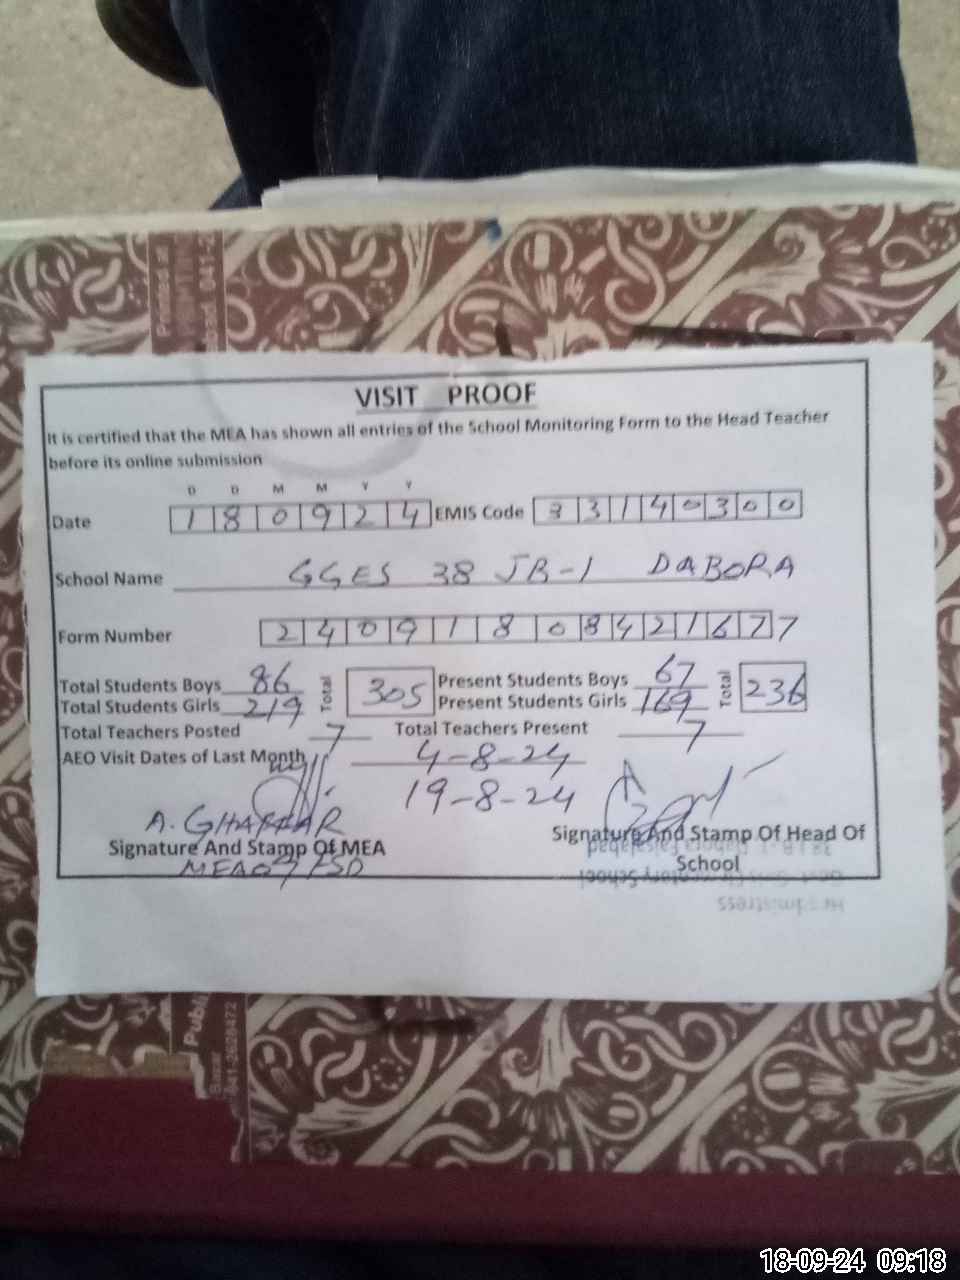 Printed at
041-2
VISIT PROOF
It is certified that the MEA has shown all entries of the School Monitoring Form to the Head Teacher
before its online submission
D D M M Y Y
Date 180924 EMIS Code 33140300
School Name GGES 38 JB-1 DABORA
Form Number 2409180842167 7
Total Students Boys 86 Total 305 Present Students Boys 67 Total 236
Total Students Girls 219 Present Students Girls 169
Total Teachers Posted 7 Total Teachers Present 7
AEO Visit Dates of Last Month 4-8-24
19-8-24
A. GHAFFAR
Signature And Stamp Of MEA
MEA07 FSD
Signature And Stamp Of Head Of
School
38 J.B-1 Dabora Faisalabad
Govt. Girls Elementary School
Headmistress
Publi
Bazar
041-2629472
18-09-24 09:18